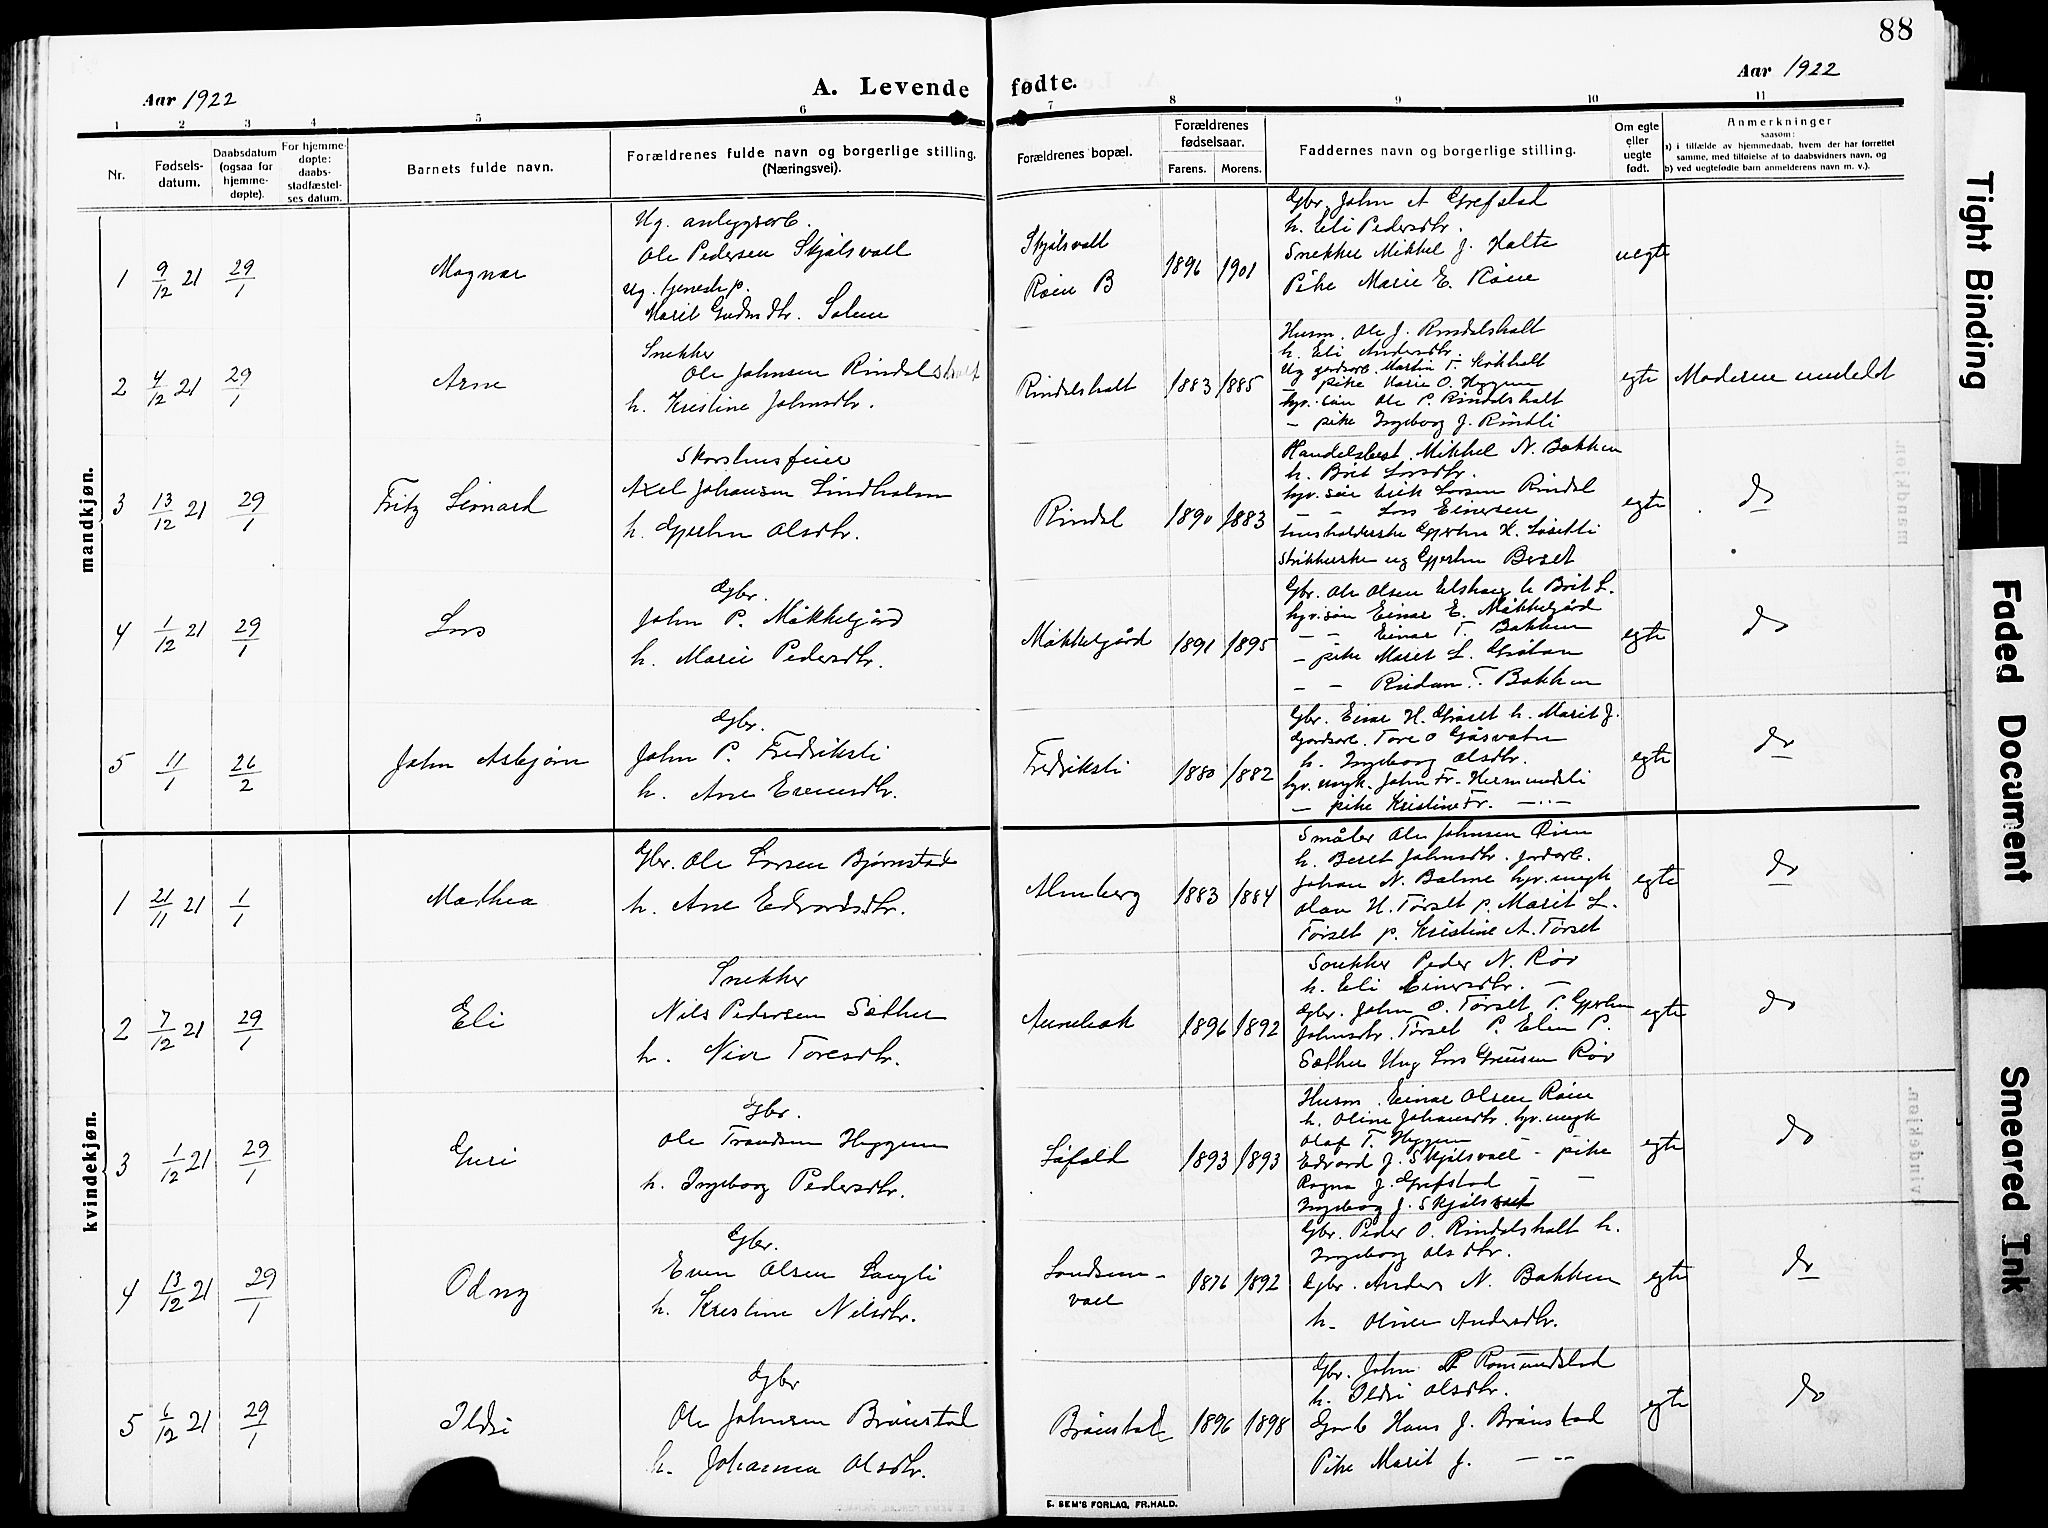 88
Aar 1922
A. Levende fødte.
Aar 1922
1 2 3 4 5 6 7 8 9 10 11
Nr.
Fødsels-
datum.
Daabsdatum
(ogsaa for
hjemme-
døpte).
For hjemme-
døpte:
daabs-
stadfæstel-
ses datum.
Barnets fulde navn.
Forældrenes fulde navn og borgerlige stilling.
(Næringsvei).
Forældrenes bopæl.
Forældrenes
fødselsaar.
Farens. Morens.
Faddernes navn og borgerlige stilling.
Om egte
eller
uegte
født.
Anmerkninger
saasom:
a) i tilfælde av hjemmedaab, hvem der har forrettet
samme, med tilføielse af to daabsvidners navn, og
b) ved uegtefødte barn anmelderens navn m. v.).
mandkjøn.
1 9/12 21 29/1 Magnar
Ug. anlyggsarb.
Ole Pedersen Skjølsvoll
Ug. tjenestp.
Marit Gudm dtr. Solem
Skjølsvoll
Røen B
1896 1901
Gbr. John A Grefstad
h. Eli Pedersdtr.
Snekker Mikkel J. Halte
Pike Marie E. Røen
uegte
2 4/12 21 29/1 Arne
Snekker
Ole Johnsen Rindalsholt
h. Kristine Johnsdtr.
Rindalsholt 1883 1885
Husm. Ole J. Rindalsholt
h. Eli Andersdtr.
Ug gardsarb. Martin T.
— pike Marie O. Heggem
hjv. søn Ole P. Rindalsholt
— pike Ingeborg J. Rindli
egte
Moderen innledt
3 13/12 21 29/1 Fritz Leonard
Skorstensfeier
Axel Johansen Lindholm
h. Gjertru Olsdtr.
Rindal 1890 1883
Handelsbest. Mikkel N. Bakken
h. Brit Larsdtr.
hjv. søn Erik Larsen Rindal
— — Lars Einersen
husholderske Gjertru H.
Strikkerske ug Gjertru Bolset
egte do
4 1/12 21 29/1 Lars
Gbr.
John P. Møkkelgård
h. Marie Pedersdtr.
Møkkelgård 1891 1895
Gbr. Ole Olsen Elshaug h Brit L.
hjv. søn Einar E. Møkkelgård
— — Einar T. Bakken
— pike Marit L.
— — T. Bakken
egte do
5 11/1 26/2 John Asbjørn
Gbr.
John P. Fredriksli
h. Ane Evensdtr.
Fredriksli 1880 1882
Gbr. Einar H. h. Marit J.
Gardsarb. Tore O Gåsvatn
h. Ingeborg Olsdtr.
hjv. ungk. John Fr. Hermundsli
— pike Kristine Fr. — " —
egte do
kvindekjøn.
1 21/11 21 1/1 Mathea
Gbr. Ole Larsen Bjørnstad
h. Ane Edvardsdtr.
Almberg 1883 1884
Småbr Ole Johnsen Øien
h. Beret Johnsdtr. jordarb.
Johan N. Bolme hjv. ungk
Olav H. Tørset p. Marit L.
Tørset p. Kristine A. Tørset
egte do
2 7/12 21 29/1 Eli
Snekker
Nils Pedersen Sæther
h. Toresdtr.
Aunebak 1896 1892
Snekker Peder N. Røv
h. Eli Einersdtr. —
Gbr. John O. Tørset P. Gjertru
Johnsdtr. Tørset P. Elen P.
Sæther Ung Lars Røv
egte do
3 1/12 21 29/1 Guri
Gbr.
Ole Trondsen Heggem
h. Ingeborg Pedersdtr.
Løfald 1893 1893
Husm. Einar Olsen Røen
h. Oline Johansdtr. hjv. ungk
Olaf T. Heggem
Edvard J. Skjølsvoll — pike
Ragna J. Grefstad — —
Ingeborg J. Skjølsvoll
egte do
4 13/12 21 29/1 Odny
Gbr.
Even Olsen Langli
h. Kristine Nilsdtr.
Landsem-
voll
1876 1892
Gbr. Peder O. Rindalsholt h.
Ingeborg Olsdtr.
Gbr. Anders N. Bakken
h. Oline Andersdtr.
egte do
5 6/12 21 29/1 Ildri
Gbr
Ole Johnsen Brønstad
h. Johanna Olsdtr.
Brønstad 1896 1898
Gbr. John P Romundstad
h. Ildri Olsdtr.
Garb Hans J. Brønstad
Pike Marit J. — " —
egte do
E. SEM'S FORLAG, FR.HALD.
Tight Binding
Faded Document
Smeared Ink